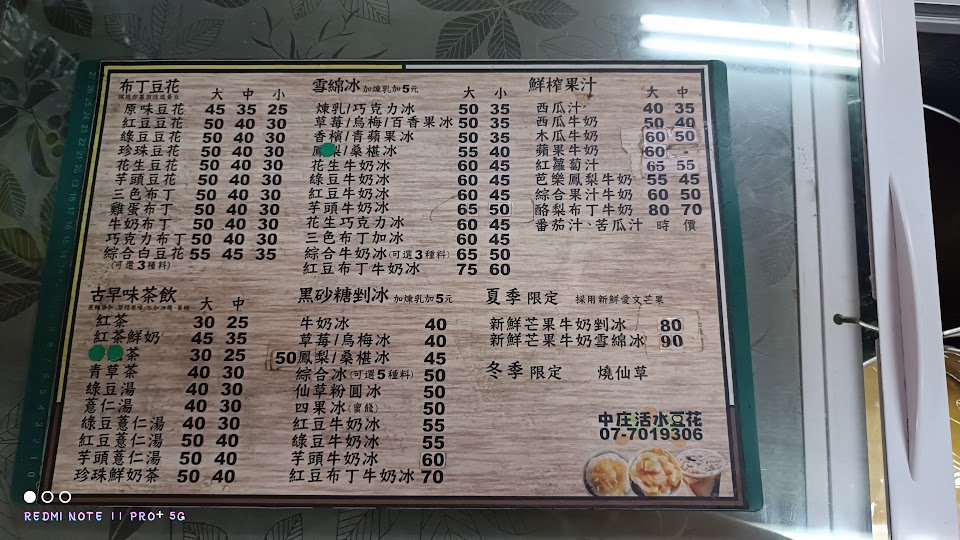 布丁豆花 大 中 小
原味豆花 45 35 25
紅豆豆花 50 40 30
綠豆豆花 50 40 30
珍珠豆花 50 40 30
花生豆花 50 40 30
芋頭豆花 50 40 30
三色布丁 50 40 30
雞蛋布丁 50 40 30
牛奶布丁 50 40 30
巧克力布丁 50 40 30
綜合白豆花 55 45 35
(可選3種料)
雪綿冰 加煉乳加5元 大 小
煉乳/巧克力冰 50 35
草莓/烏梅/百香果冰 50 35
香檳/青蘋果冰 50 35
鳳梨/桑椹冰 55 40
花生牛奶冰 60 45
綠豆牛奶冰 60 45
紅豆牛奶冰 60 45
芋頭牛奶冰 65 50
花生巧克力冰 60 45
三色布丁加冰 60 45
綜合牛奶冰(可選3種料) 65 50
紅豆布丁牛奶冰 75 60
鮮榨果汁 大 中
西瓜汁 40 35
西瓜牛奶 50 40
木瓜牛奶 60 50
蘋果牛奶 60
紅蘿蔔汁 65 55
芭樂鳳梨牛奶 55 45
綜合果汁牛奶 60 50
酪梨布丁牛奶 80 70
番茄汁、苦瓜汁 時 價
古早味茶飲 大 中
紅茶 30 25
紅茶鮮奶 45 35
茶 30 25
青草茶 40 30
綠豆湯 40 30
薏仁湯 40 30
綠豆薏仁湯 40 30
紅豆薏仁湯 50 40
芋頭薏仁湯 50 40
珍珠鮮奶茶 50 40
黑砂糖剉冰 加煉乳加5元
牛奶冰 40
草莓/烏梅冰 40
50鳳梨/桑椹冰 45
綜合冰(可選5種料) 50
仙草粉圓冰 50
四果冰(蜜餞) 50
紅豆牛奶冰 55
綠豆牛奶冰 55
芋頭牛奶冰 60
紅豆布丁牛奶冰 70
夏季限定 採用新鮮愛文芒果
新鮮芒果牛奶剉冰 80
新鮮芒果牛奶雪綿冰 90
冬季限定 燒仙草
中庄活水豆花
07-7019306
REDMI NOTE 11 PRO+ 5G